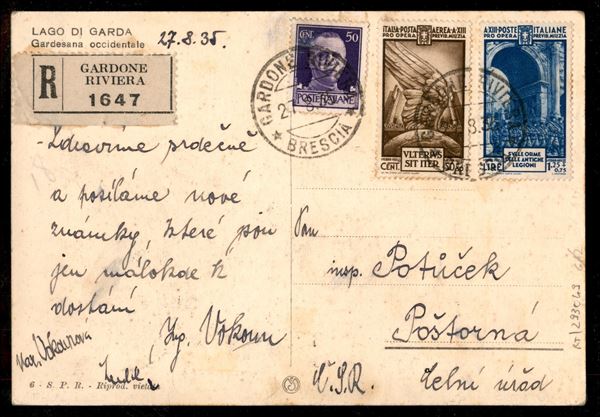 LAGO DI GARDA
Gardesana occidentale
27.8.35.
R
GARDONE
RIVIERA
1647
CENT. 50
POSTE ITALIANE
GARDONE RIVIERA
BRESCIA
ITALIA-POSTA AEREA-A.XIII
PRO OPERA PREVID. MILIZIA
VLTERIVS
SIT ITER
CENT.
A.XIII-POSTE ITALIANE
PRO OPERA PREVID. MILIZIA
SVLLE ORME
DELLE ANTICHE
LEGIONI
LIRE 1.25+
0.75
Zdravíme srdečně
a posíláme nové
známky, které jsou
jen málokde k
dostání
Ing. Vokoun
Mar. Vokounova
Pan
insp. Potůček
Poštorná
Č.S.R. Celní úřad
6 - S. P. R. - Riprod. vietata